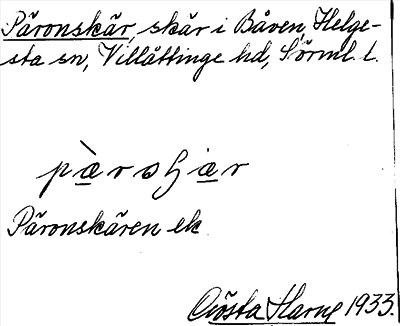 Päronskär, skär i Båven, Helge-
sta sn, Villåttinge hd, Sörml. l.
Päronskären ek
Gösta Harne 1933.